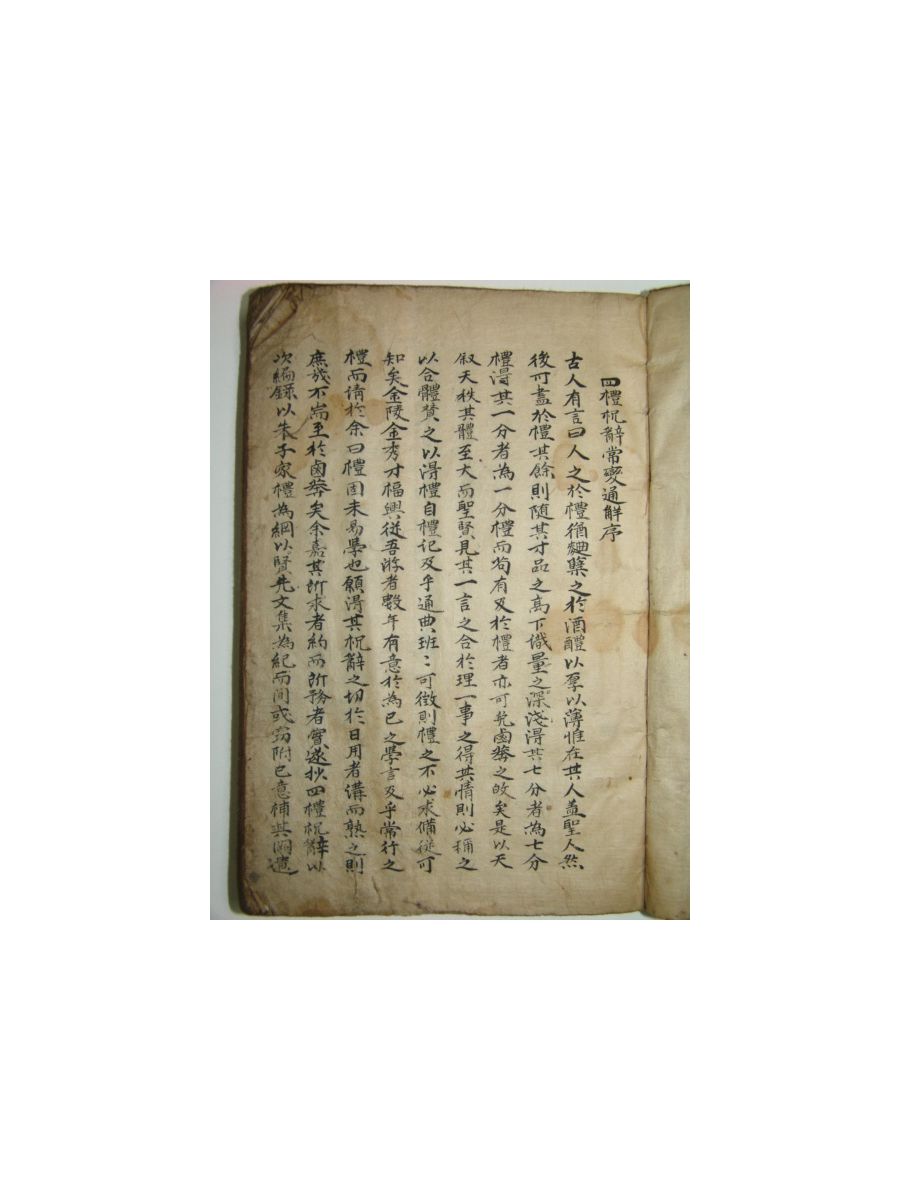 四禮祝辭常變通解序
古人有言曰人之於禮猶麯糵之於酒醴以厚以薄惟在其人盖聖人然
後可盡於禮其餘則随其才品之高下識量之深淺得其七分者為七分
禮得其一分者為一分禮而苟有及於禮者亦可免鹵莾之故矣是以天
叙天秩其體至大而聖賢見其一言之合於理一事之得其情則必稱之
以合體贊之以得禮自禮記及乎通典班〻可徵則禮之不必求備從可
知矣金陵金秀才福興從吾游者數年有意於為己之學言及乎常行之
禮而倩於余曰禮固未易學也願得其祝辭之切於日用者講而熟之則
庶或不耑至於鹵莾矣余嘉其所求者約而所務者實遂抄四禮祝辭以
次編錄以朱子家禮為綱以賢先文集為紀而间或窃附己意補其闕遺